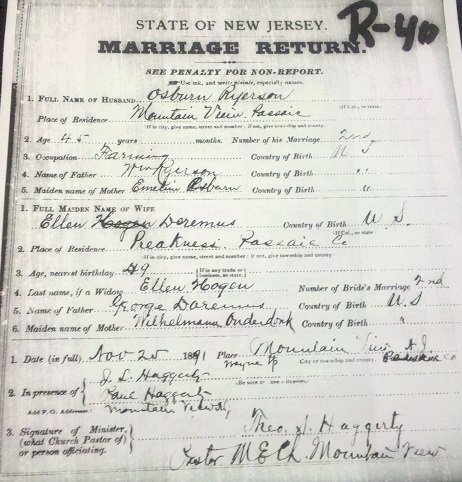 R-40
STATE OF NEW JERSEY.
MARRIAGE RETURN.
SEE PENALTY FOR NON-REPORT.
Use ink, and write plainly, especially names.
1. FULL NAME OF HUSBAND Osburn Ryerson
Place of Residence Mountain View Passaic (If Col., so state
(If in city, give name, street and number; if not, give township and county)
2. Age 45 years months. Number of his Marriage 2nd
3. Occupation Farming Country of Birth U S
4. Name of Father Wm Ryerson Country of Birth "
5. Maiden name of Mother Emeline Osburn Country of Birth "
1. FULL MAIDEN NAME OF WIFE
Ellen Hogen Doremus Country of Birth U. S.
(If Col., so state
2. Place of Residence Preakness. Passaic Co
(If in city, give name, street and number; if not, give township and county)
3. Age, nearest birthday 49 (If in any trade or business, so state.)
4. Last name, if a Widow Ellen Hogen Number of Bride's Marriage 2nd
5. Name of Father George Doremus Country of Birth U S
6. Maiden name of Mother Wilhelmena Onderdonk Country of Birth "
1. Date (in full) Nov 25 1891 Place Mountain View N. J.
Wayne Tp City or township, county. Passaic Co
2. In presence of J. L. Haggerty
(Be sure to see witnesses.
Paul Haggerty
Add P. O. Address Mountain View NJ
3. Signature of Minister, (what Church Pastor of) or person officiating. Theo. S. Haggerty
Pastor M E Ch. Mountain View